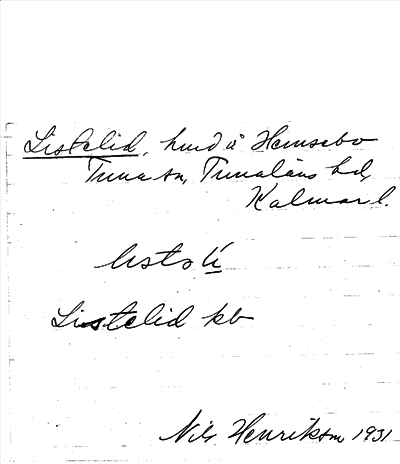 Listelid, hmd å Hemsebo
Tuna sn, Tunaläns hd,
Kalmar l.
listəlí
Listelid kb
Nils Henrikson 1931